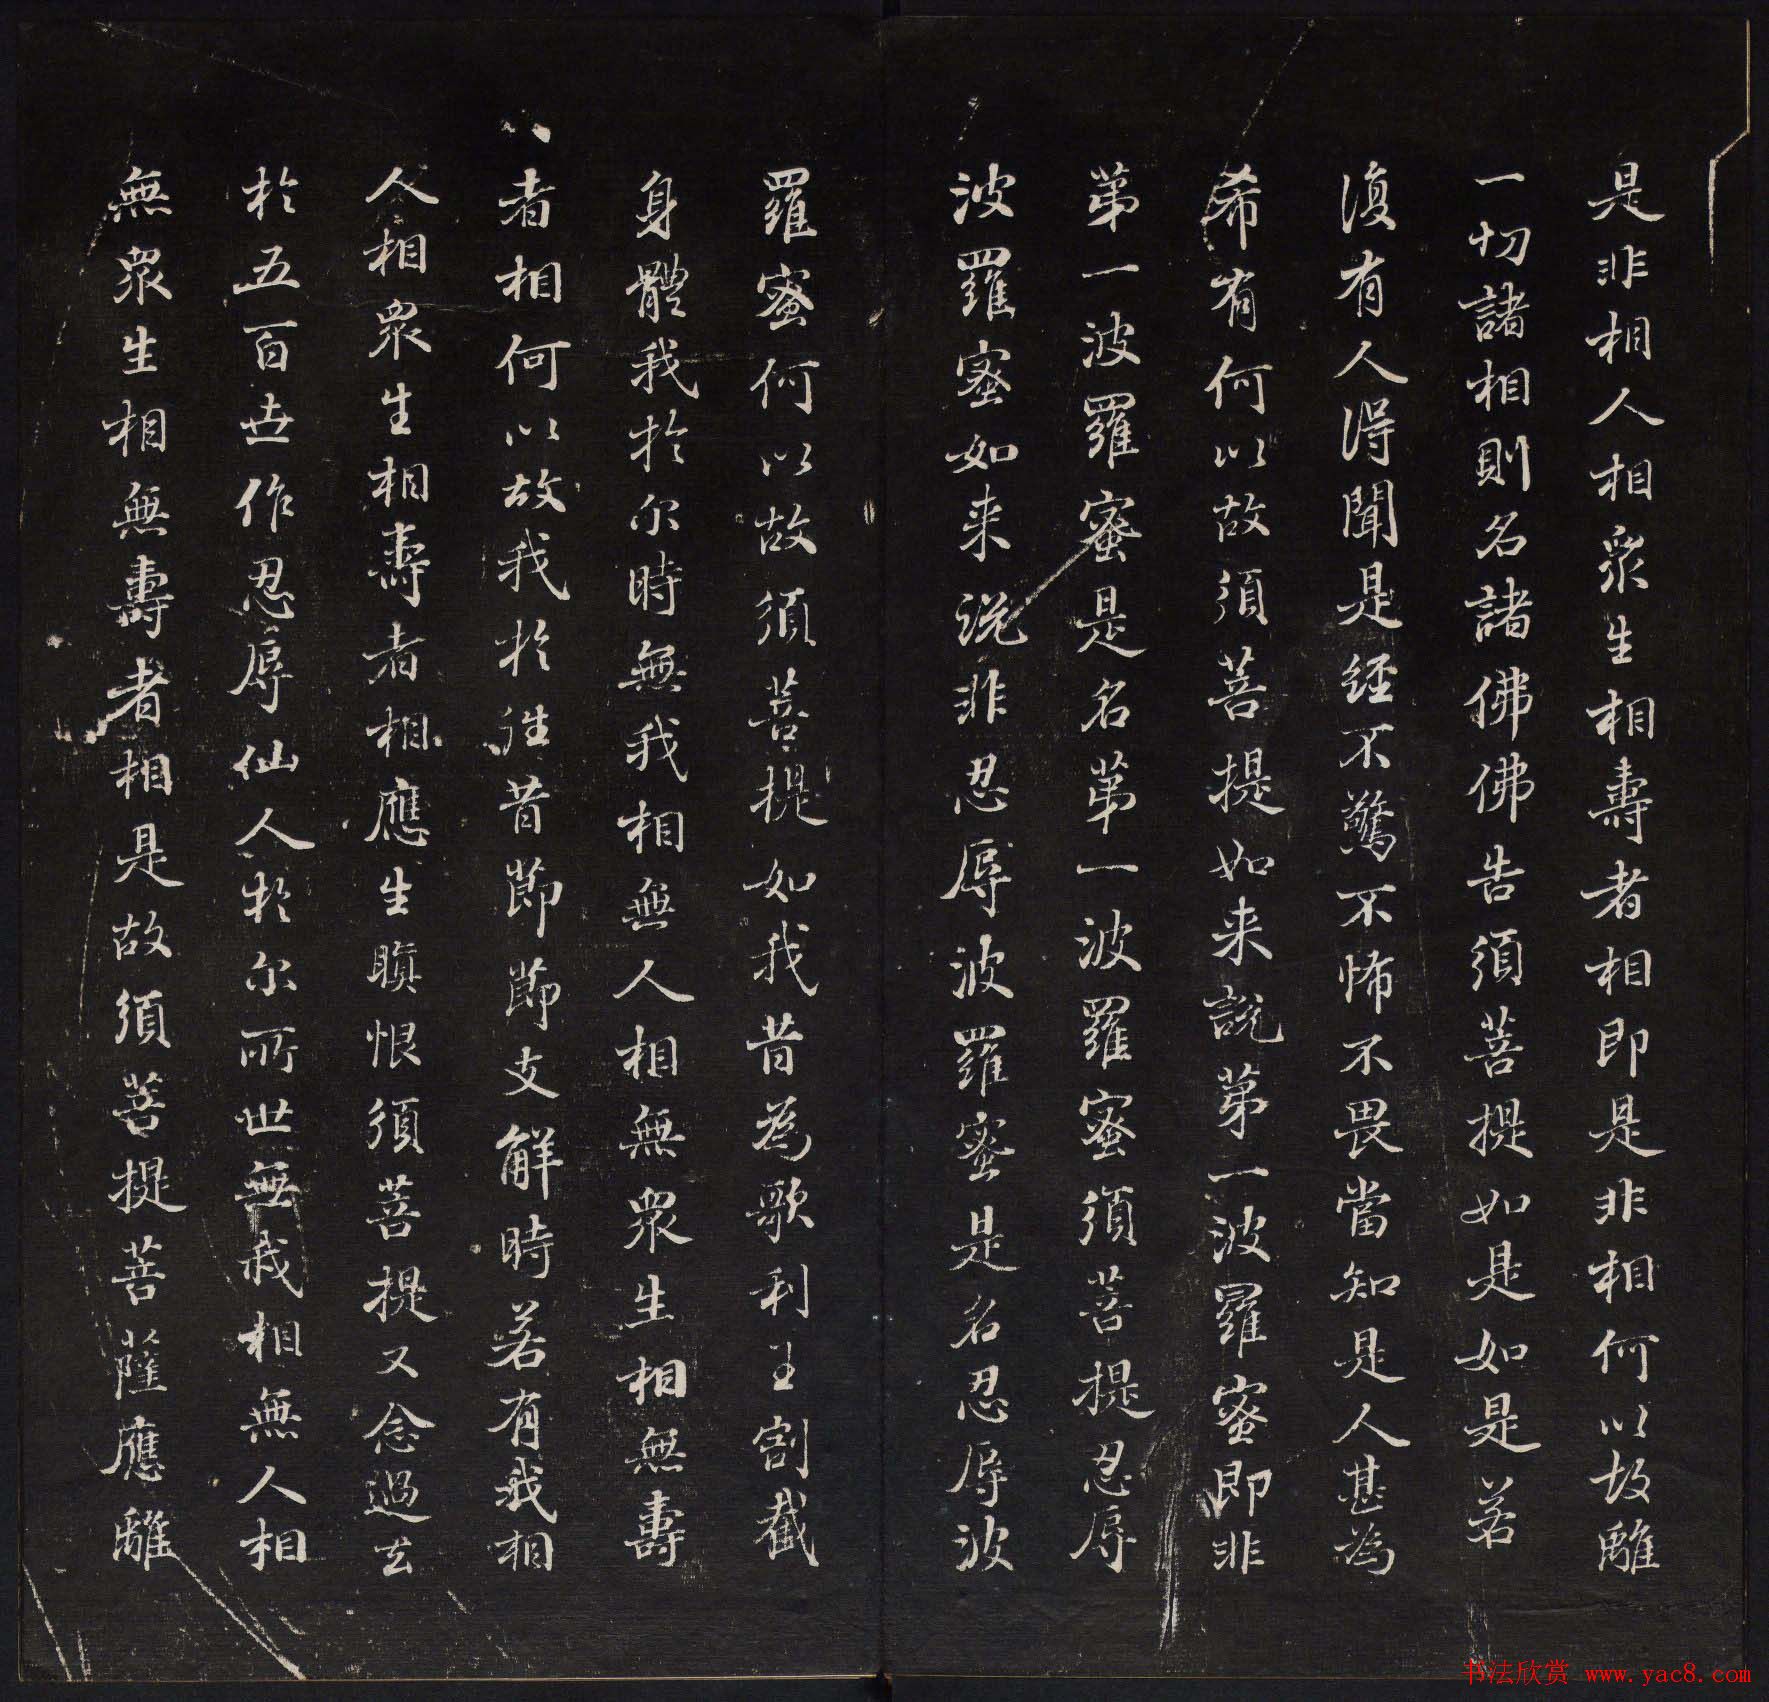 是非相人相衆生相壽者相即是非相何以故離
一切諸相則名諸佛佛告須菩提如是如是若
復有人得聞是經不驚不怖不畏當知是人甚為
希有何以故須菩提如来說第一波羅蜜即非
第一波羅蜜是名第一波羅蜜須菩提忍辱
波羅蜜如来說非忍辱波羅蜜是名忍辱波
羅蜜何以故須菩提如我昔為歌利王割截
身體我於尔時無我相無人相無衆生相無壽
者相何以故我於往昔節節支解時若有我相
人相衆生相壽者相應生瞋恨須菩提又念過去
於五百世作忍辱仙人於尔所世無我相無人相
無衆生相無壽者相是故須菩提菩薩應離
书法欣赏 www.yac8.com